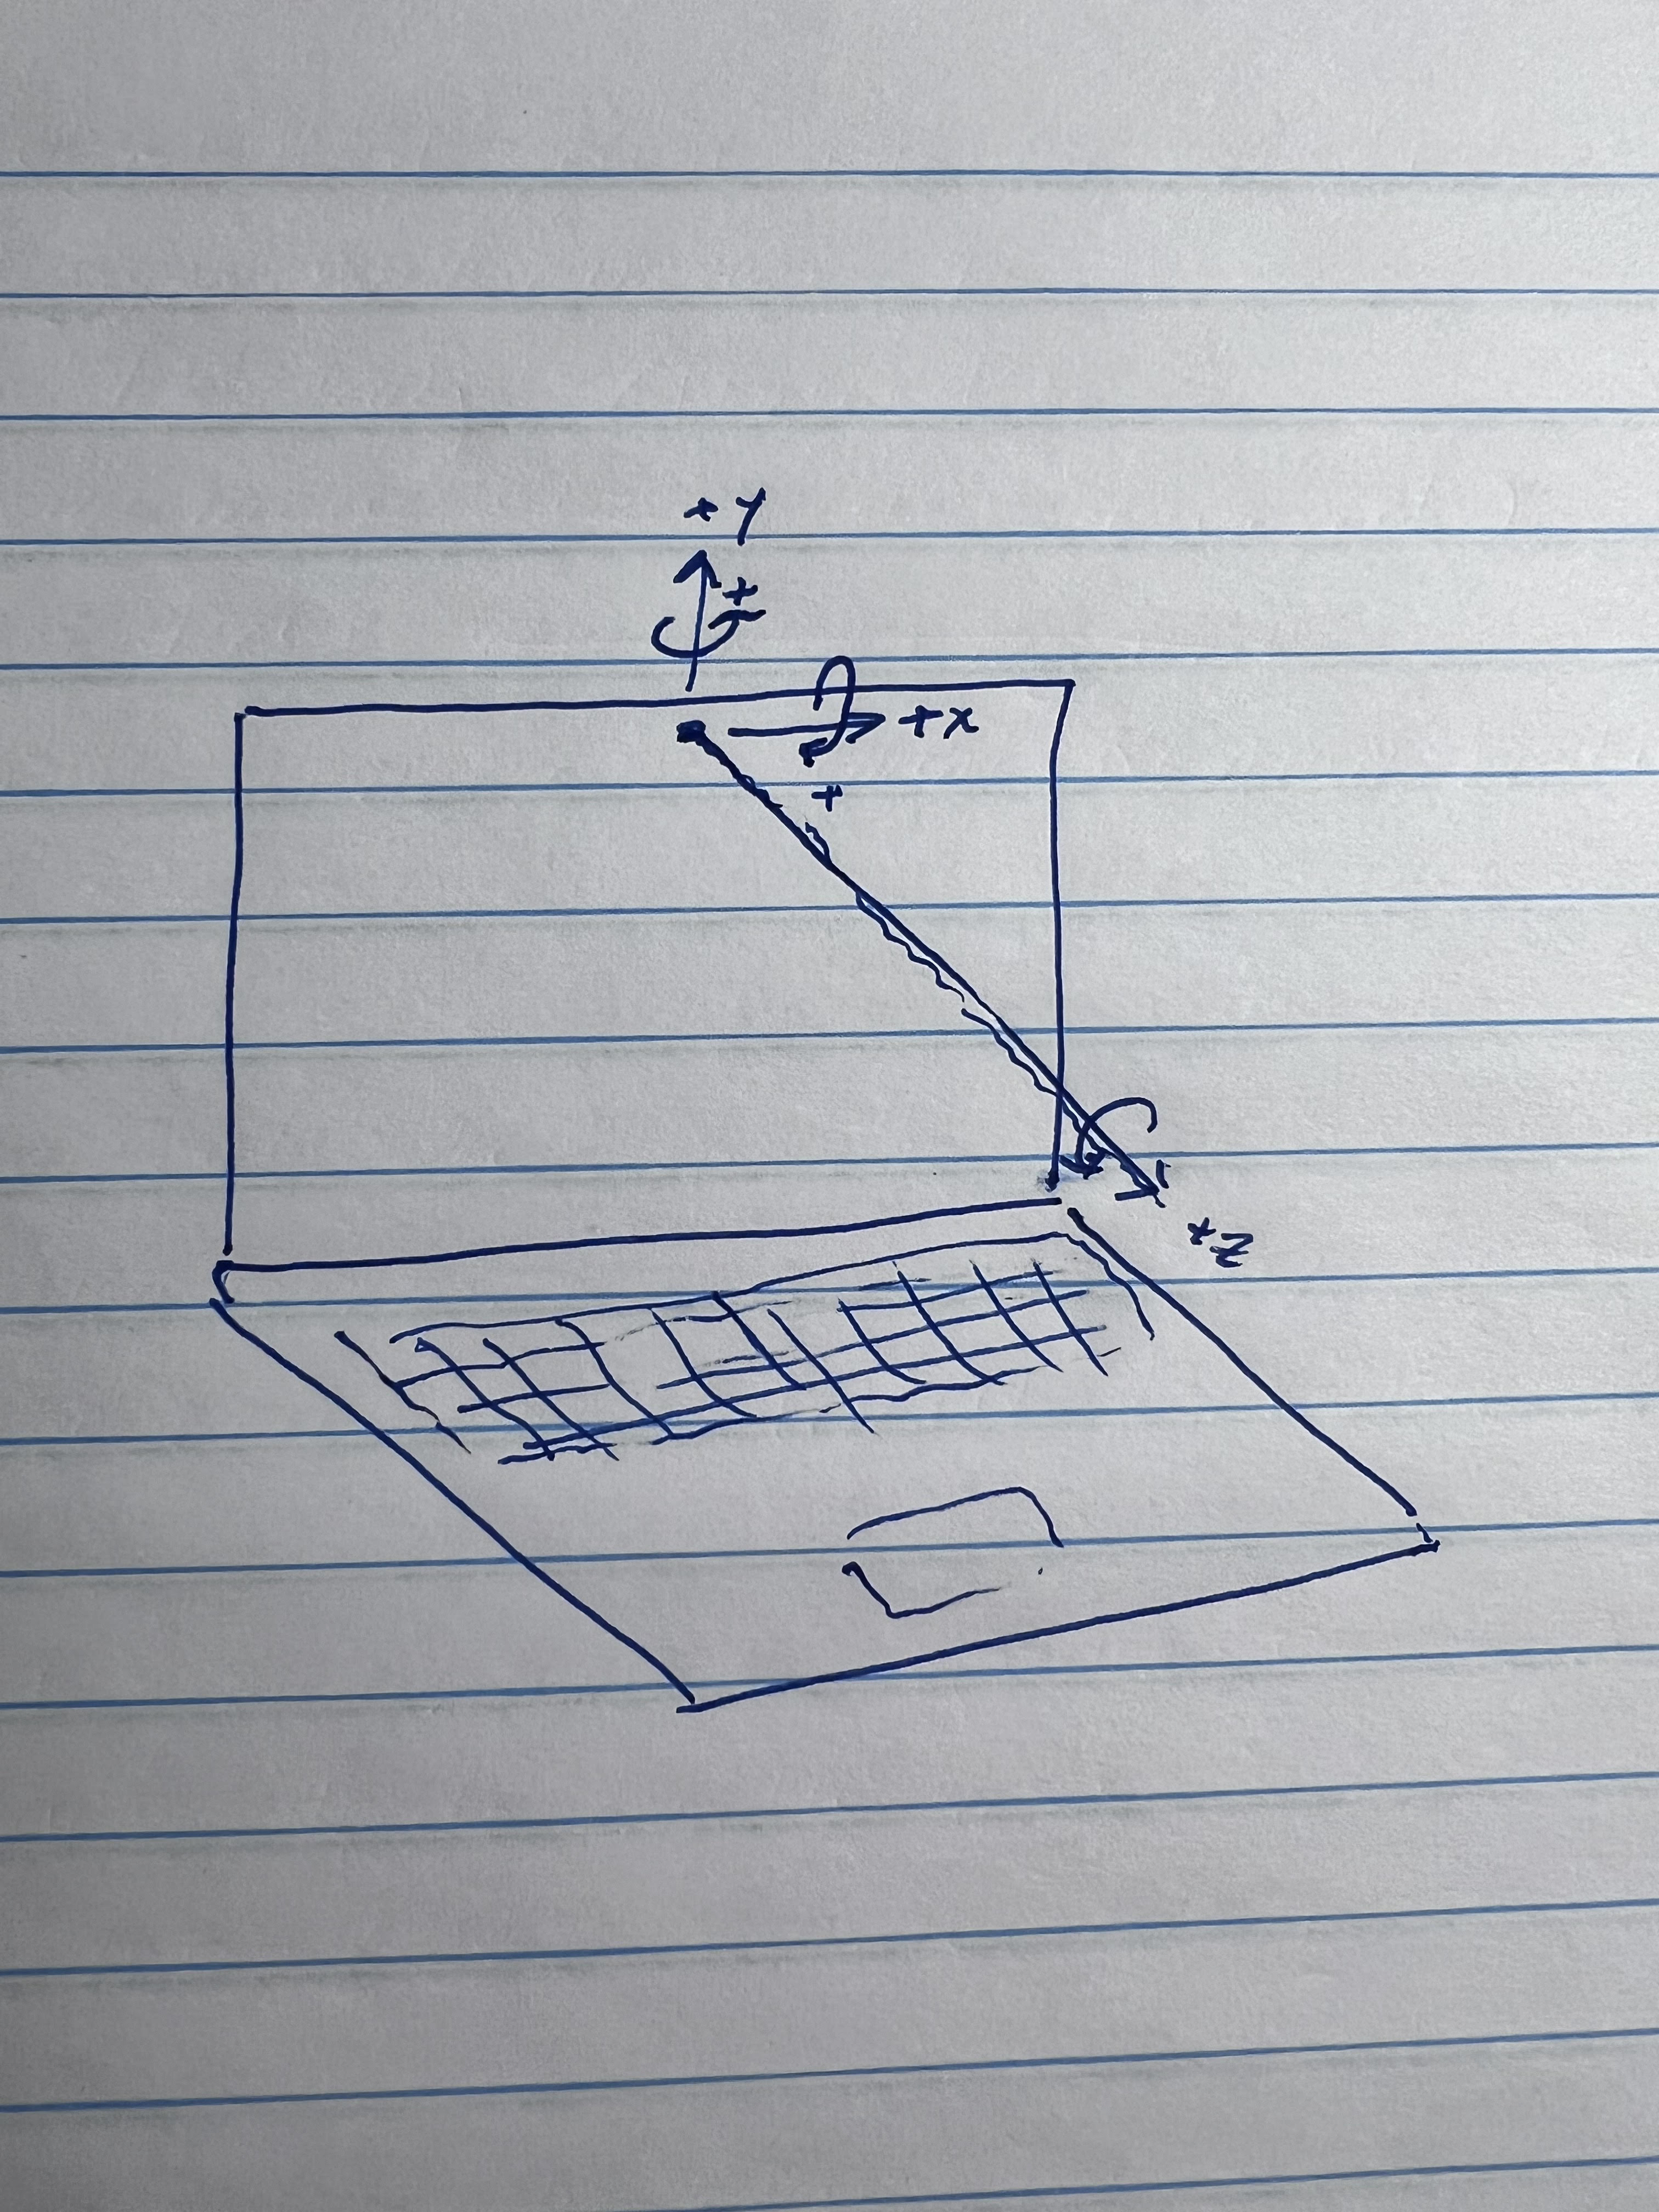 +Y
+
+X
+
+Z